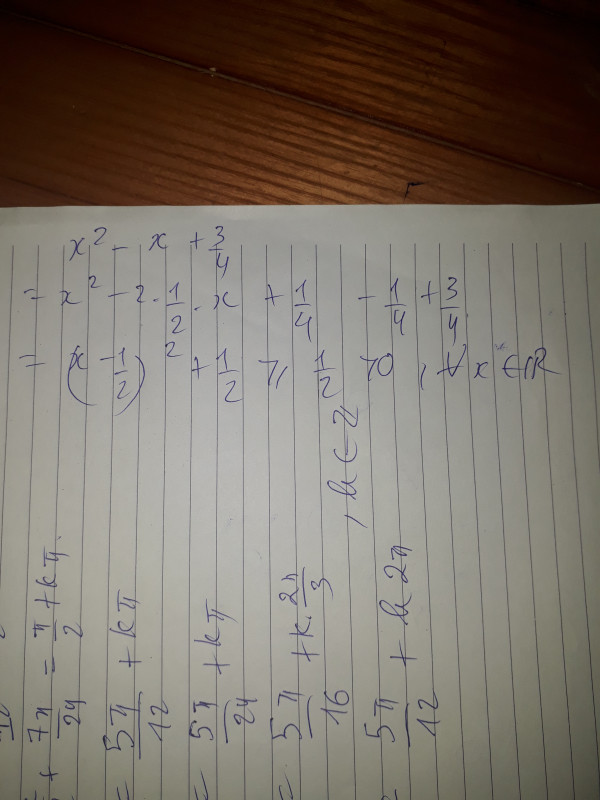 x² - x + 3/4
= x² - 2 · 1/2 · x + 1/4 - 1/4 + 3/4
= (x - 1/2)² + 1/2 ≥ 1/2 > 0 , ∀ x ∈ ℝ
+ 7π/24 = π/2 + kπ
= 5π/12 + kπ
= 5π/24 + kπ
= 5π/16 + k · 2π/3
5π/12 + k2π , k ∈ ℤ